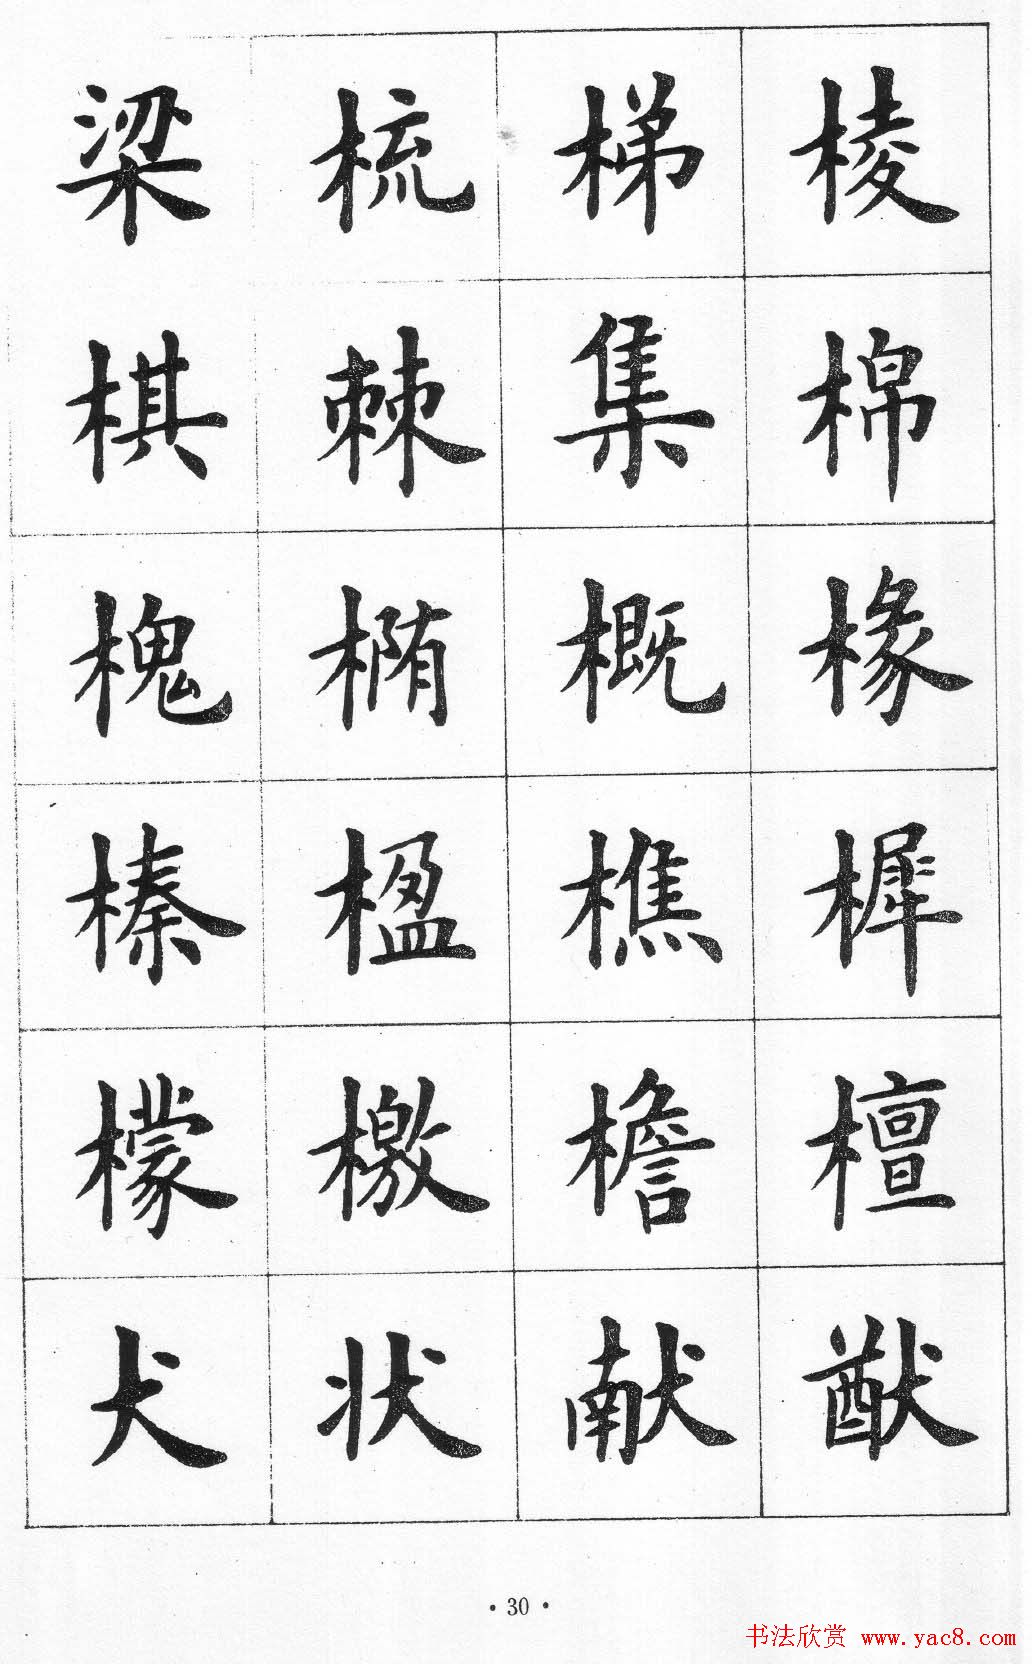 梁梳梯棱
棋棘集棉
槐椭概椽
榛楹樵樨
檬檄檐檀
犬状献猷
· 30 ·
书法欣赏 www.yac8.com